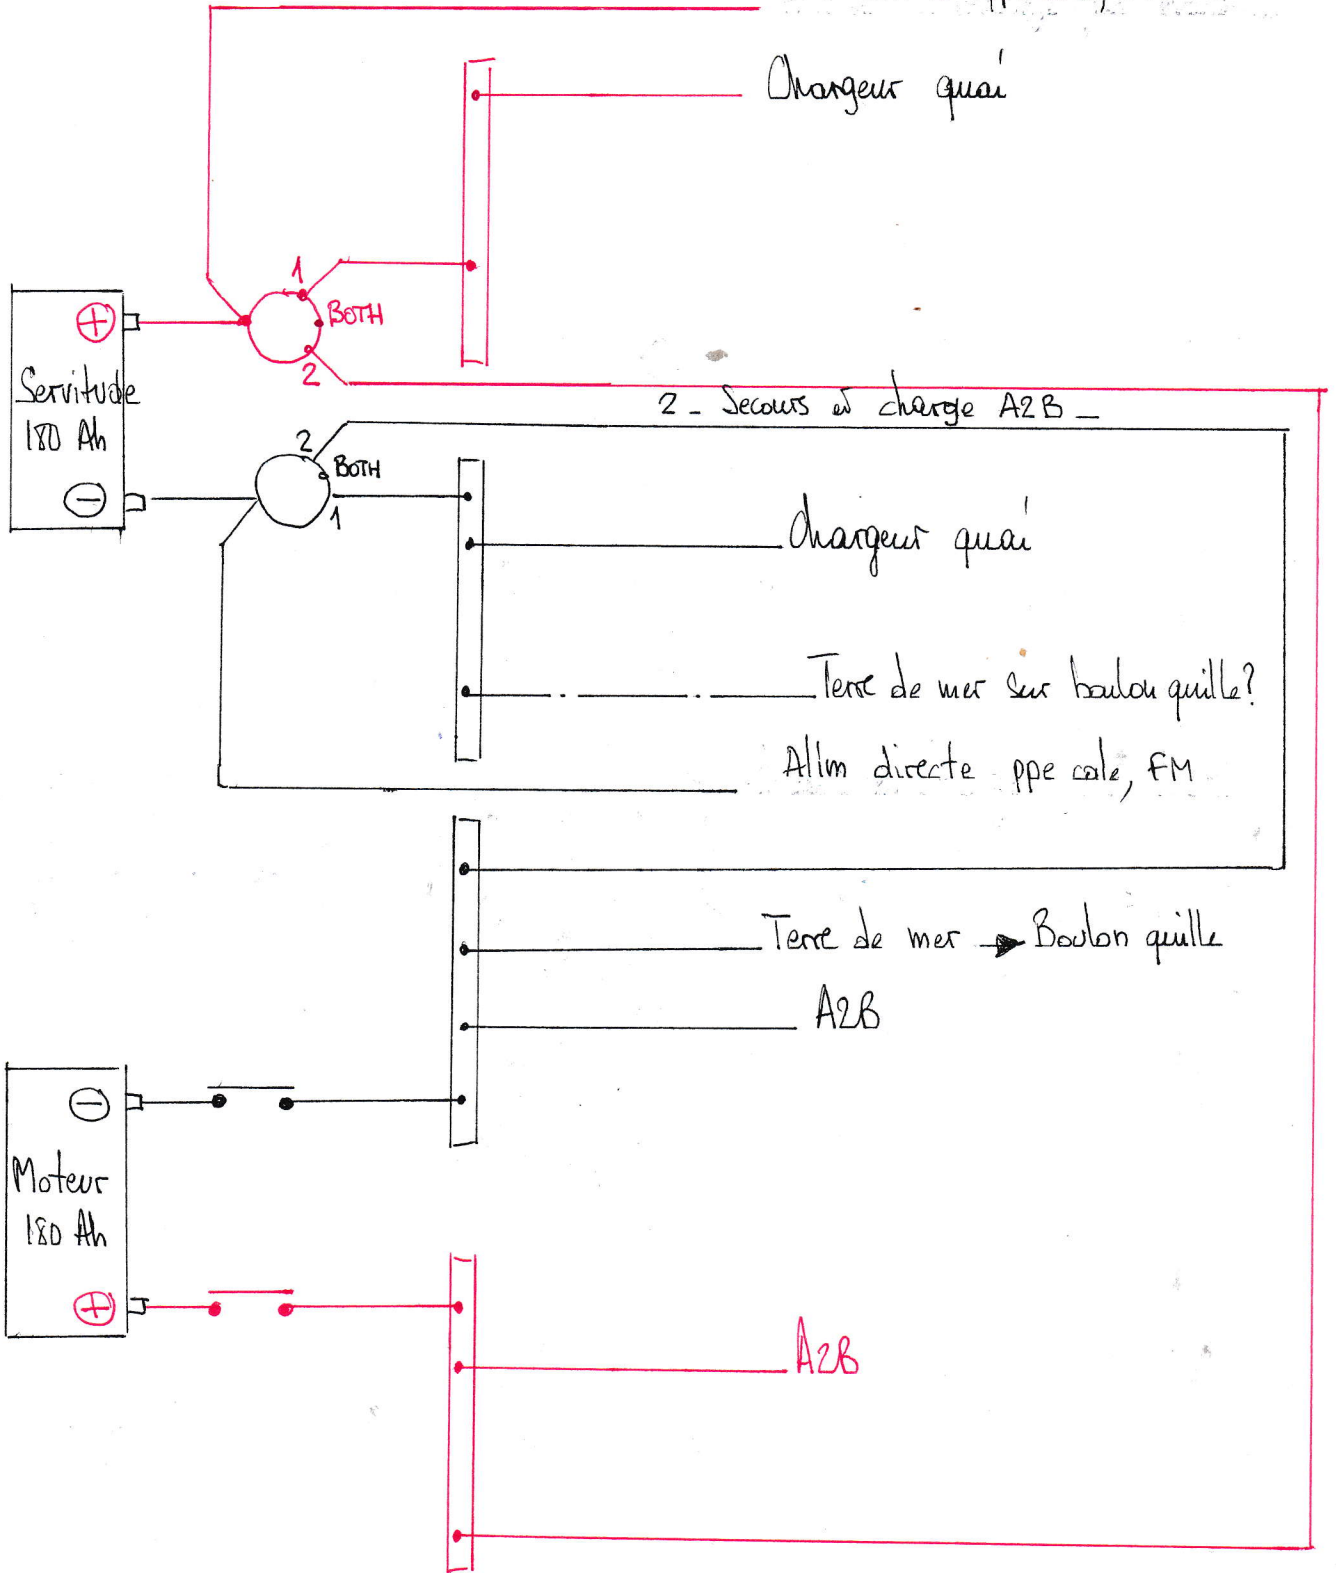 Chargeur quai
1
BOTH
+
2
Servitude
180 Ah
2 - Secours et charge A2B -
2
BOTH
-
1
Chargeur quai
Terre de mer sur boulon quille?
Alim directe ppe cale, FM
Terre de mer → Boulon quille
A2B
-
Moteur
180 Ah
+
A2B